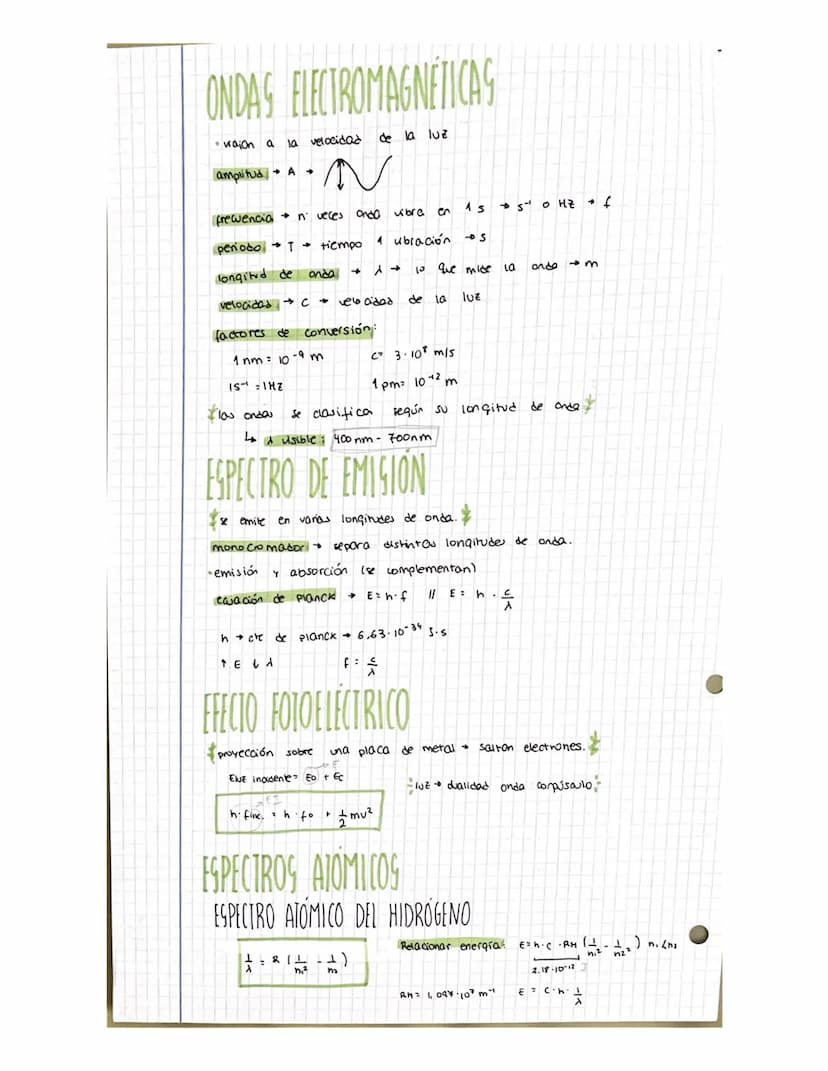 ONDAS ELECTROMAGNÉTICAS
• viajan a la velocidad de la luz
amplitud → A →
frecuencia → nº veces onda vibra en 1 s → s⁻¹ o Hz → f
periodo → T → tiempo 1 vibración → s
longitud de onda → λ → lo que mide la onda → m
velocidad → c → velocidad de la luz
factores de conversión:
1 nm = 10⁻⁹ m c = 3·10⁸ m/s
1s⁻¹ = 1Hz 1 pm = 10⁻¹² m
las ondas se clasifica según su longitud de onda
↳ λ visible: 400 nm - 700nm
ESPECTRO DE EMISIÓN
se emite en varias longitudes de onda.
monocromador → separa distintas longitudes de onda.
• emisión y absorción (se complementan)
ecuación de Planck → E = h·f // E = h · c/λ
h → cte de Planck → 6,63·10⁻³⁴ J·s
↑ E ↓ λ f = c/λ
EFECTO FOTOELÉCTRICO
proyección sobre una placa de metal → saltan electrones.
Ene incidente = Eo + Ec
luz → dualidad onda corpúsculo
h · finc. = h · fo + 1/2 mv²
ESPECTROS ATÓMICOS
ESPECTRO ATÓMICO DEL HIDRÓGENO
Relacionar energía: E = h·c·RH (1/n₁² - 1/n₂²) n₁<n₂
1/λ = R (1/n₁² - 1/n₂)
2,18·10⁻¹⁸ J
RH = 1,097·10⁷ m⁻¹ E = c·h·1/λ